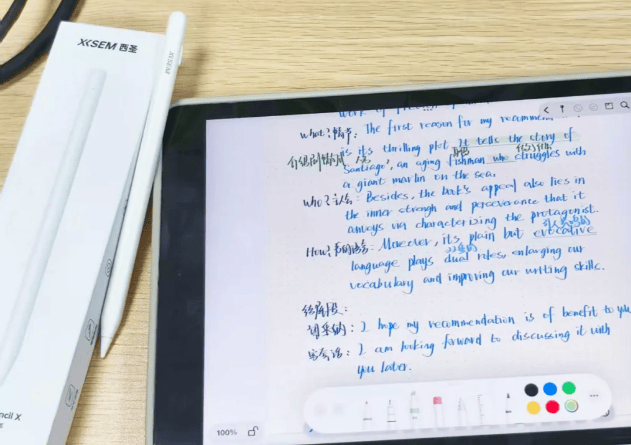 XSEM 西圣
XISEM
work of
What?情节: The first reason for my recommen
is it's thrilling plot. It tells the story of
Santiago', an aging fisherman who struggles with
a giant marlin on the sea.
Who?主人公: Besides, the book's appeal also lies in
the inner strengh and perseverance that it
conveys via characterizing the protagonist.
How?书的语言: Moreover, its plain but evocative
language plays dual roles, enlarging our
vocabulary and improving our writing skills.
结尾段:
望采纳: I hope my recommendation is of benefit to you
写交流: I am looking forward to discussing it with
you later.
100%
ncil X